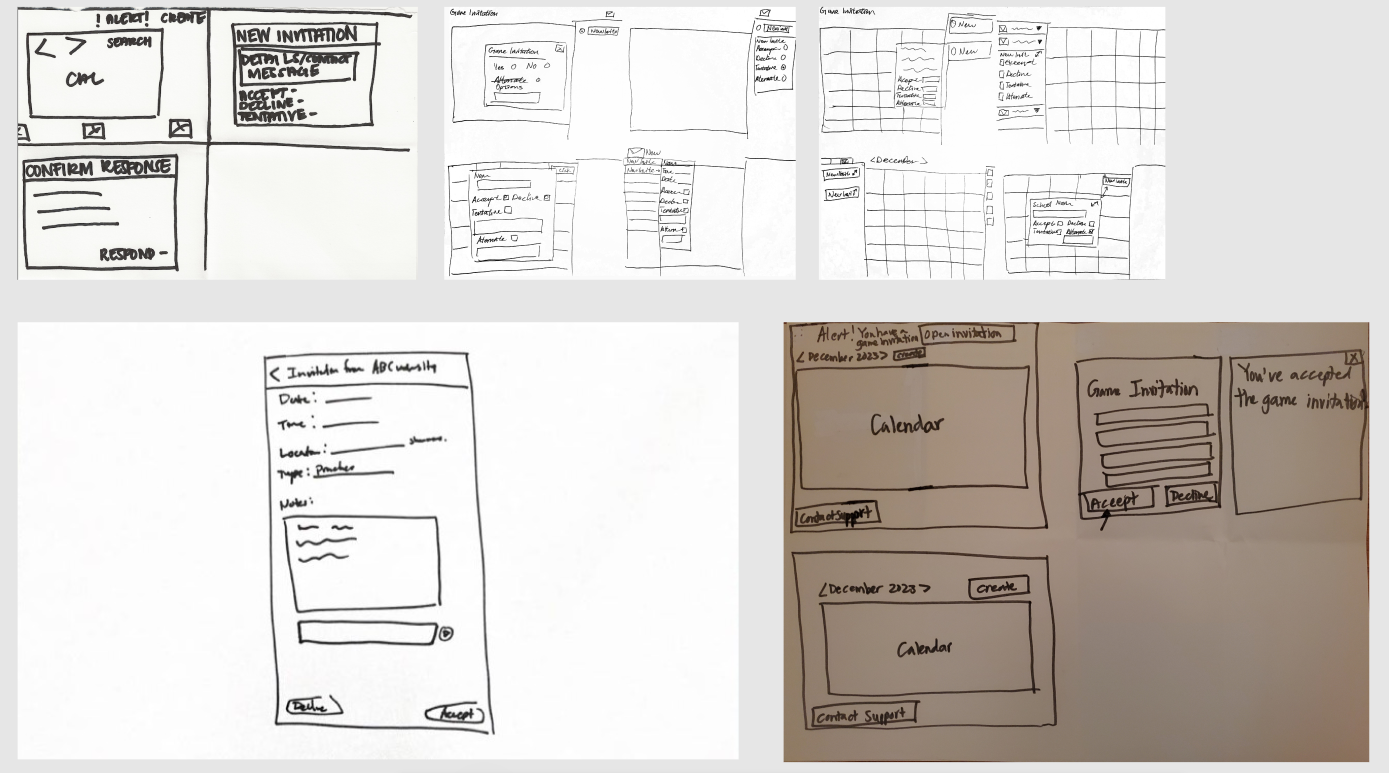 ! ALERT! CREATE
< > SEARCH
CAL
NEW INVITATION
DETAILS/CONTACT
MESSAGE
ACCEPT -
DECLINE -
TENTATIVE -
CONFIRM RESPONSE
RESPOND -
Game Invitation
Game Invitation
Yes No
Alternate
Options
New Invite
Accept
Decline
Tentative
Alternate
New
Accept Decline
Tentative
Alternate
New
Time
Date
Accept
Decline
Tentative
Game Invitation
New
New
Accept
Decline
Tentative
Alternate
Decline
Tentative
Alternate
< December >
School Name
Accept Decline
Tentative Alternate
< Invitation from ABC university
Date:
Time:
Location:
Type: Practice
Notes:
Decline Accept
Alert! You have a
game invitation
Open invitation
< December 2023 > Create
Calendar
Contact Support
Game Invitation
Accept Decline
You've accepted
the game invitation!
< December 2023 > Create
Calendar
Contact Support